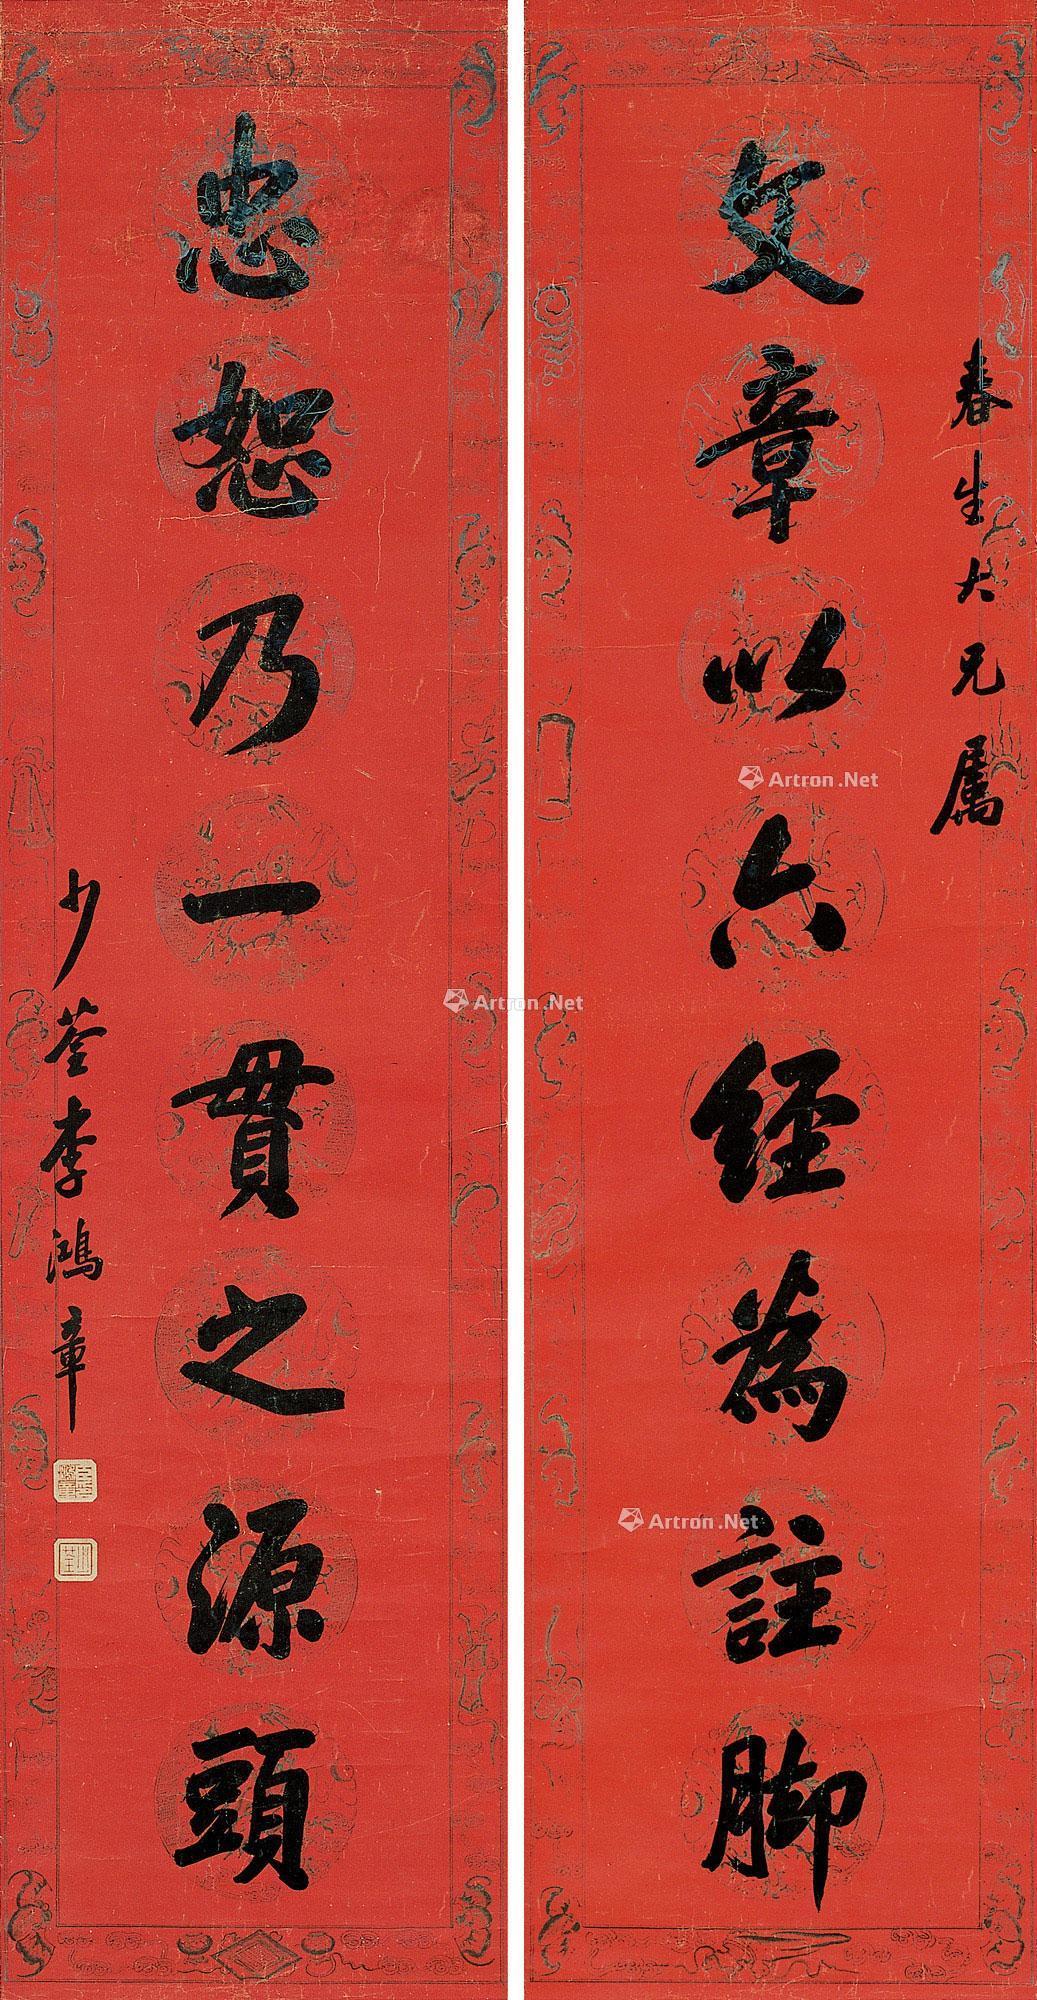 春生大兄属
文章以六经為註脚
忠恕乃一貫之源頭
少荃李鴻章
Artron.Net
Artron.Net
Artron.Net